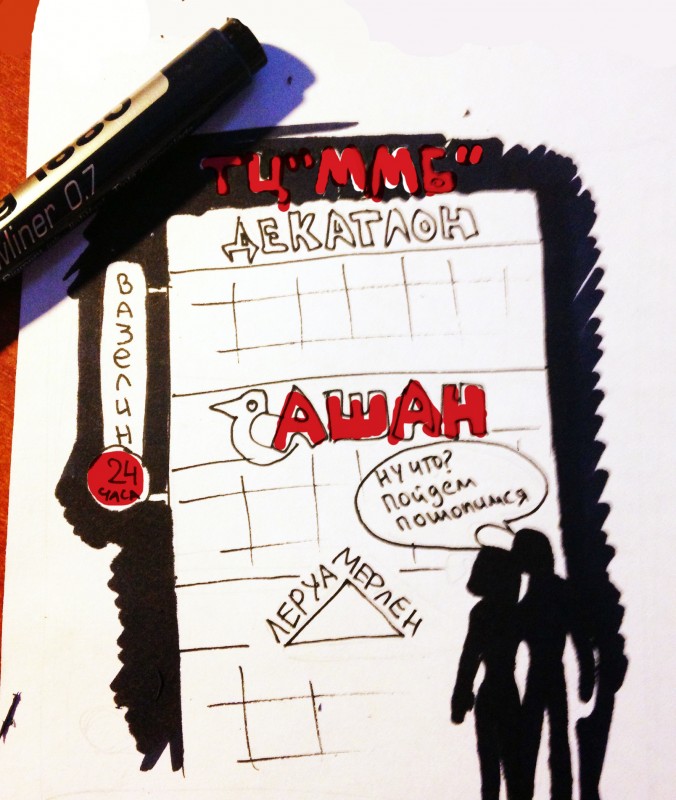 1880
liner 0.7
ТЦ "ММБ"
ДЕКАТЛОН
ВАЗЕЛИН
24
ЧАСА
АШАН
НУ ЧТО?
ПОЙДЕМ
ПОШОПИМСЯ
ЛЕРУА МЕРЛЕН